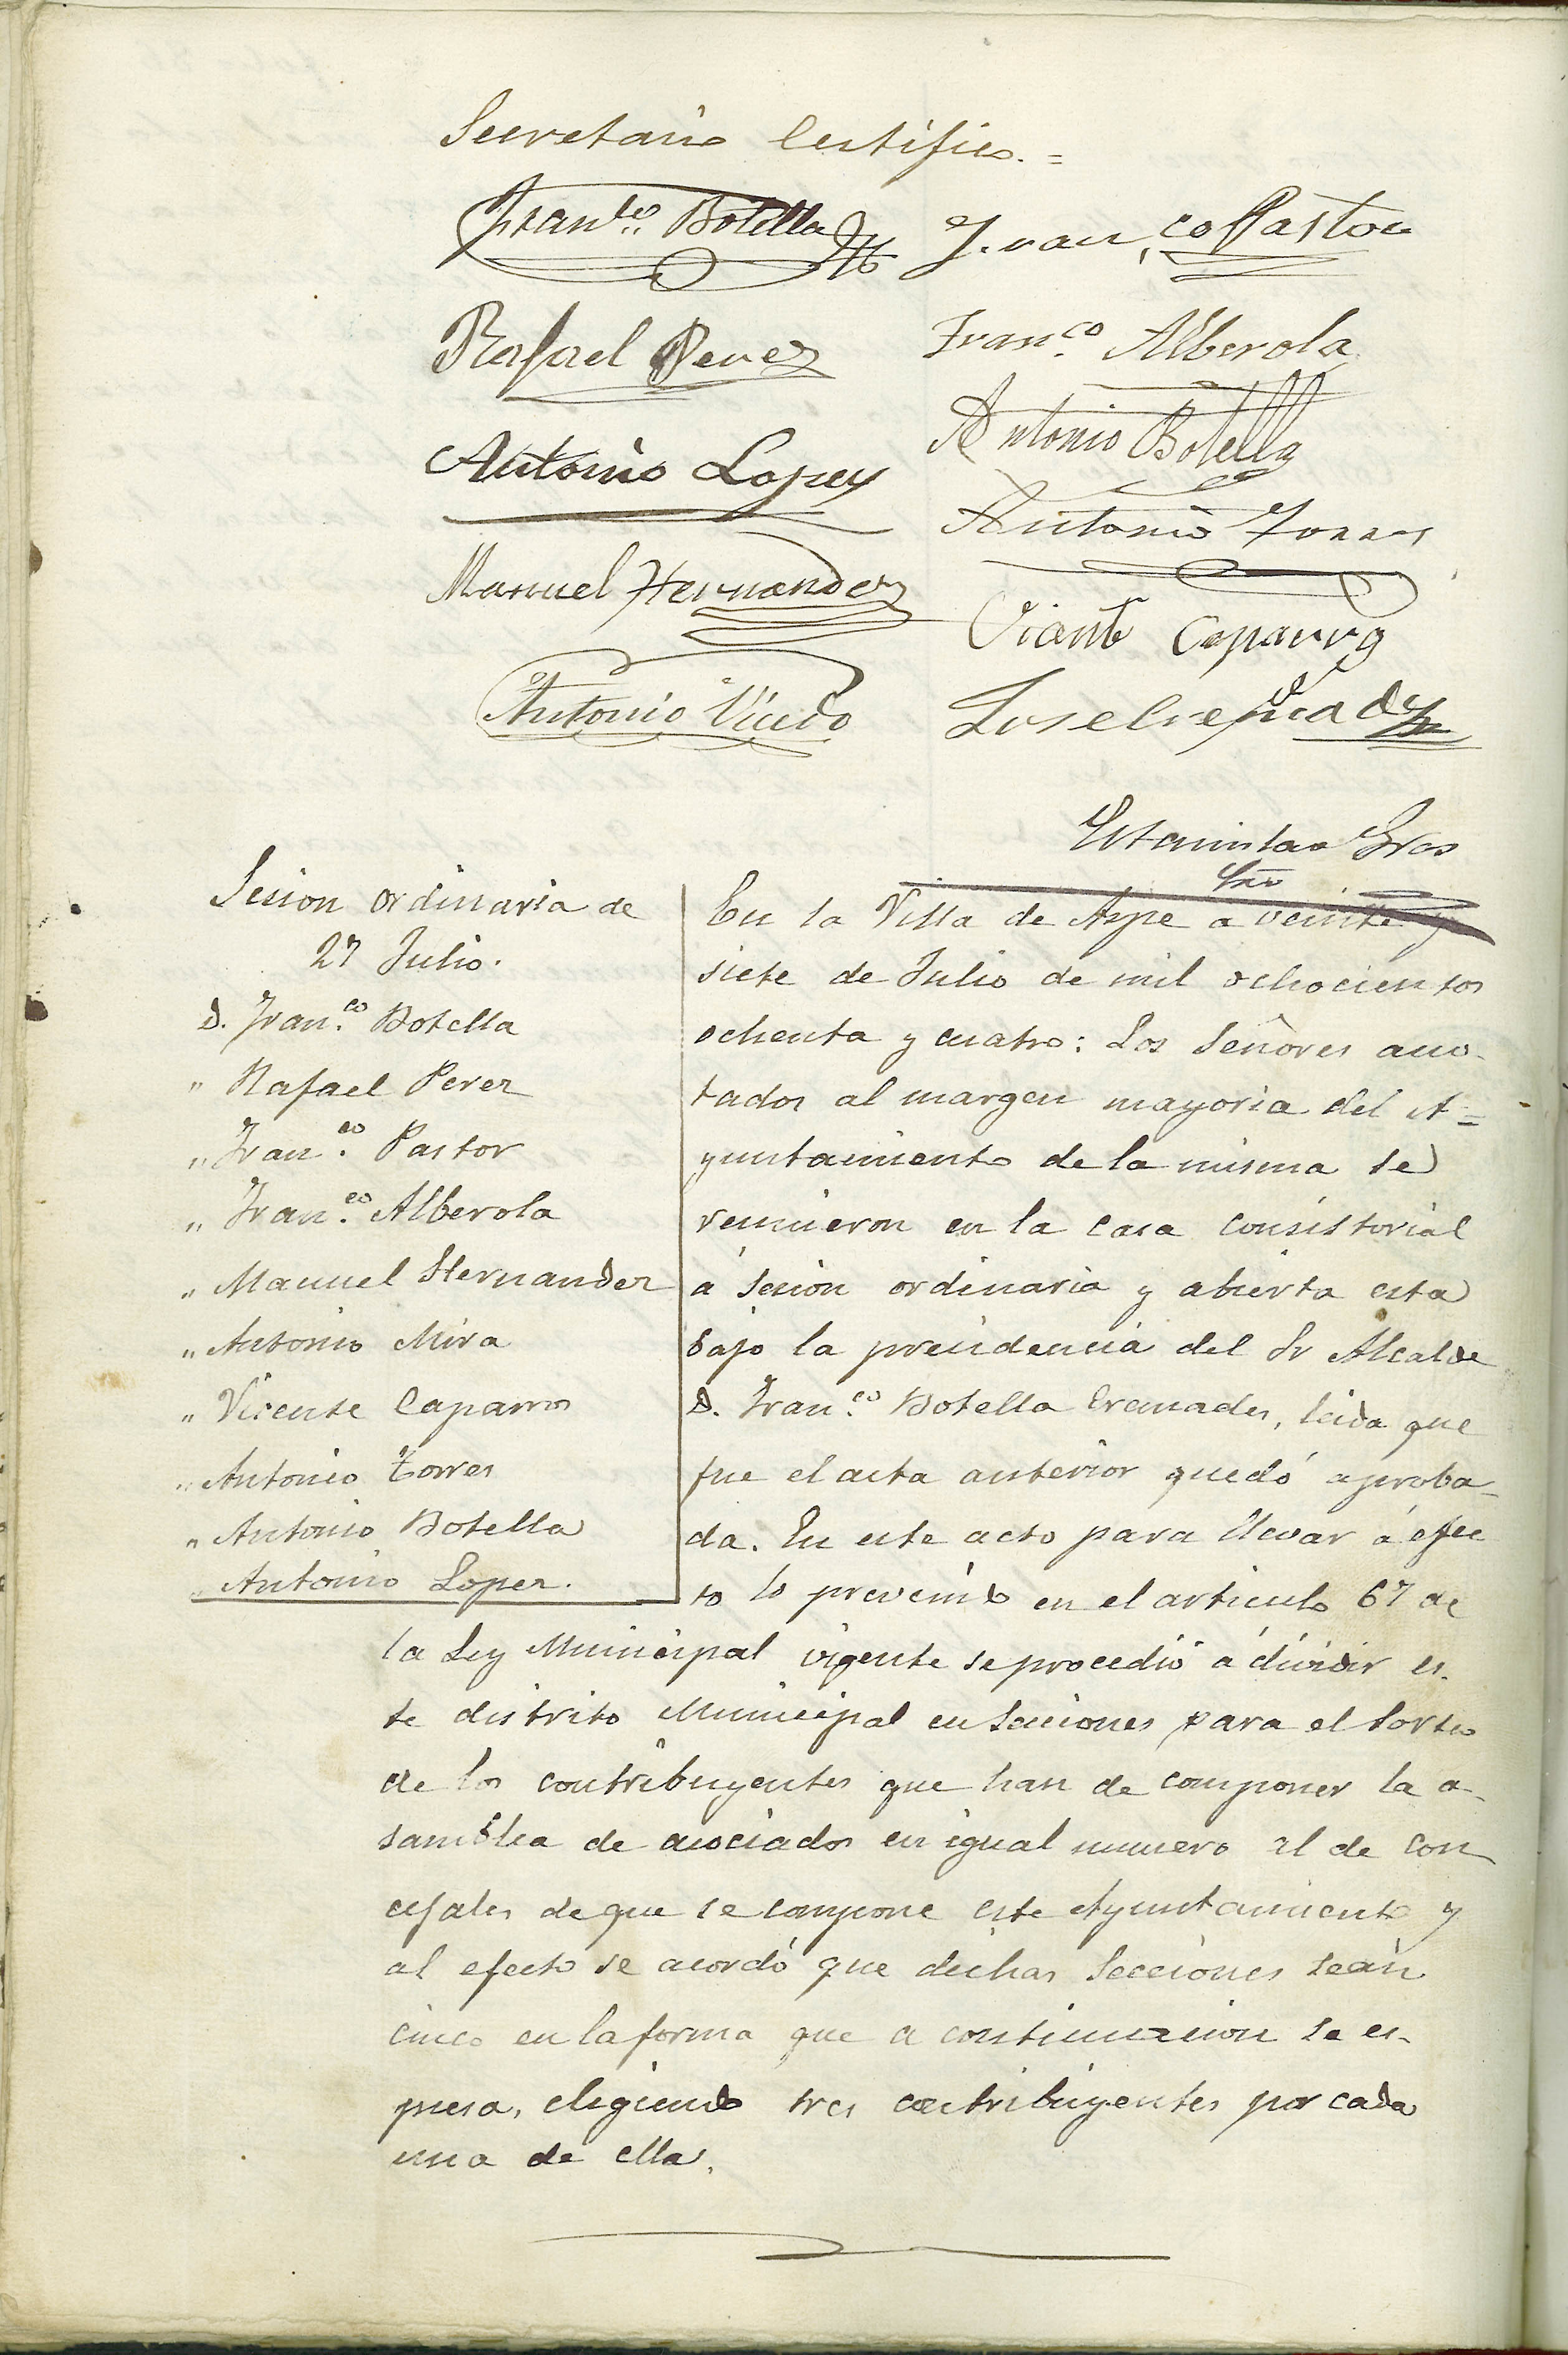 Secretario Certifico. =
Fran.co Botella
Fran,co Pastor
Rafael Perez
Fran.co Alberola
Antonio Botella
Antonio Lopez
Antonio Torres
Manuel Hernandez
Vicente Caparros
Antonio Vicedo
Estanislao Gras
Srio
Sesion ordinaria de
27 Julio.
D. Fran.co Botella
" Rafael Perez
" Fran.co Pastor
" Fran.co Alberola
" Manuel Hernandez
" Antonio Mira
" Vicente Caparros
" Antonio Torres
" Antonio Botella
" Antonio Lopez.
En la Villa de Aspe a veinte y
siete de Julio de mil ochocientos
ochenta y cuatro: Los Señores ano-
tados al margen mayoria del A=
yuntamiento de la misma se
reunieron en la casa consistorial
á sesion ordinaria y abierta esta
bajo la presidencia del Sr Alcalde
D. Fran.co Botella Cremades, leida que
fue el acta anterior quedó aproba-
da. En este acto para llevar á efec
to lo prevenido en el articulo 67 de
la Ley Municipal vigente se procedió á dividir es-
te distrito Municipal en Secciones para el Sorteo
de los contribuyentes que han de componer la a-
samblea de asociados en igual numero al de con
cejales de que se compone este Ayuntamiento y
al efecto se acordó que dichas Secciones sean
cinco en la forma que a continuacion se es-
presa, eligiendo tres contribuyentes por cada
una de ellas.